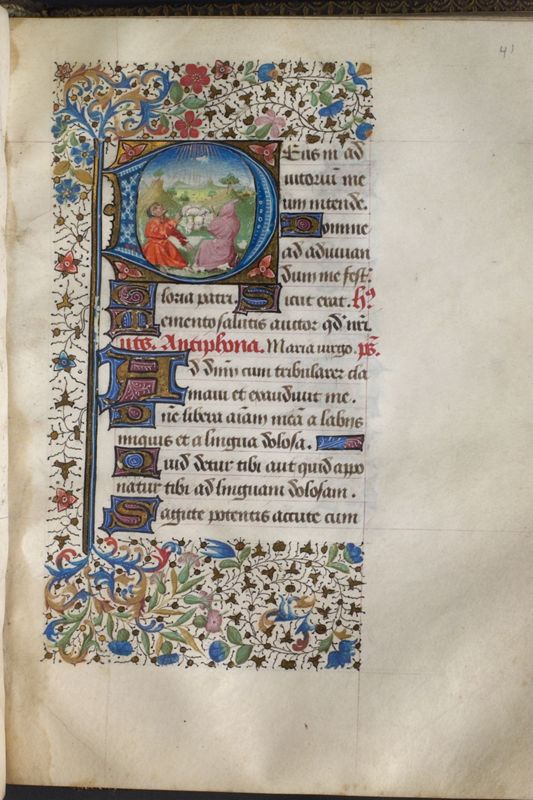 41
Deus in ad
iutoriū me
um intende.
Domine
ad adiuuan
dum me fest.
Gloria patri. Sicut erat. hȳ⁹
Memento salutis auctor qd̄ nr̄i
uts. Antiphona. Maria uirgo. ps̄.
Ad dn̄m cum tribularer cla
maui et exaudiuit me.
Dn̄e libera aīam meā a labijs
iniquis et a lingua dolosa.
Quid detur tibi aut quid appo
natur tibi ad linguam dolosam.
Sagitte potentis accute cum